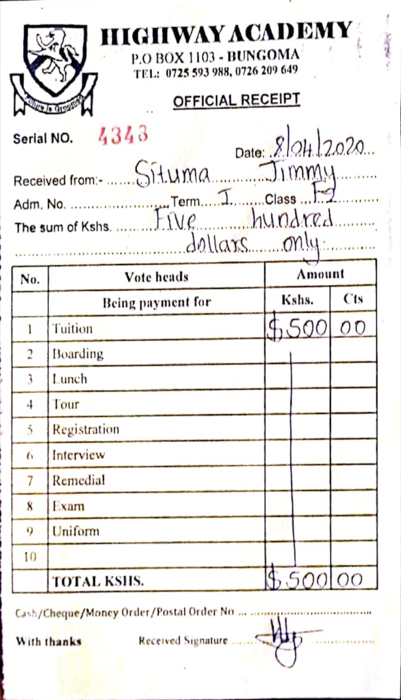 HIGHWAY ACADEMY
P.O BOX 1103 - BUNGOMA
TEL: 0725 593 988, 0726 209 649
OFFICIAL RECEIPT
Serial NO. 4343
Date: 8/04/2020
Received from:- Situma Jimmy
Adm. No. Term I Class F2
The sum of Kshs. Five hundred
dollars only
No. Vote heads Amount
Being payment for Kshs. Cts
1 Tuition $500 00
2 Boarding
3 Lunch
4 Tour
5 Registration
6 Interview
7 Remedial
8 Exam
9 Uniform
10
TOTAL KSHS. $500 00
Cash/Cheque/Money Order/Postal Order No
With thanks Received Signature